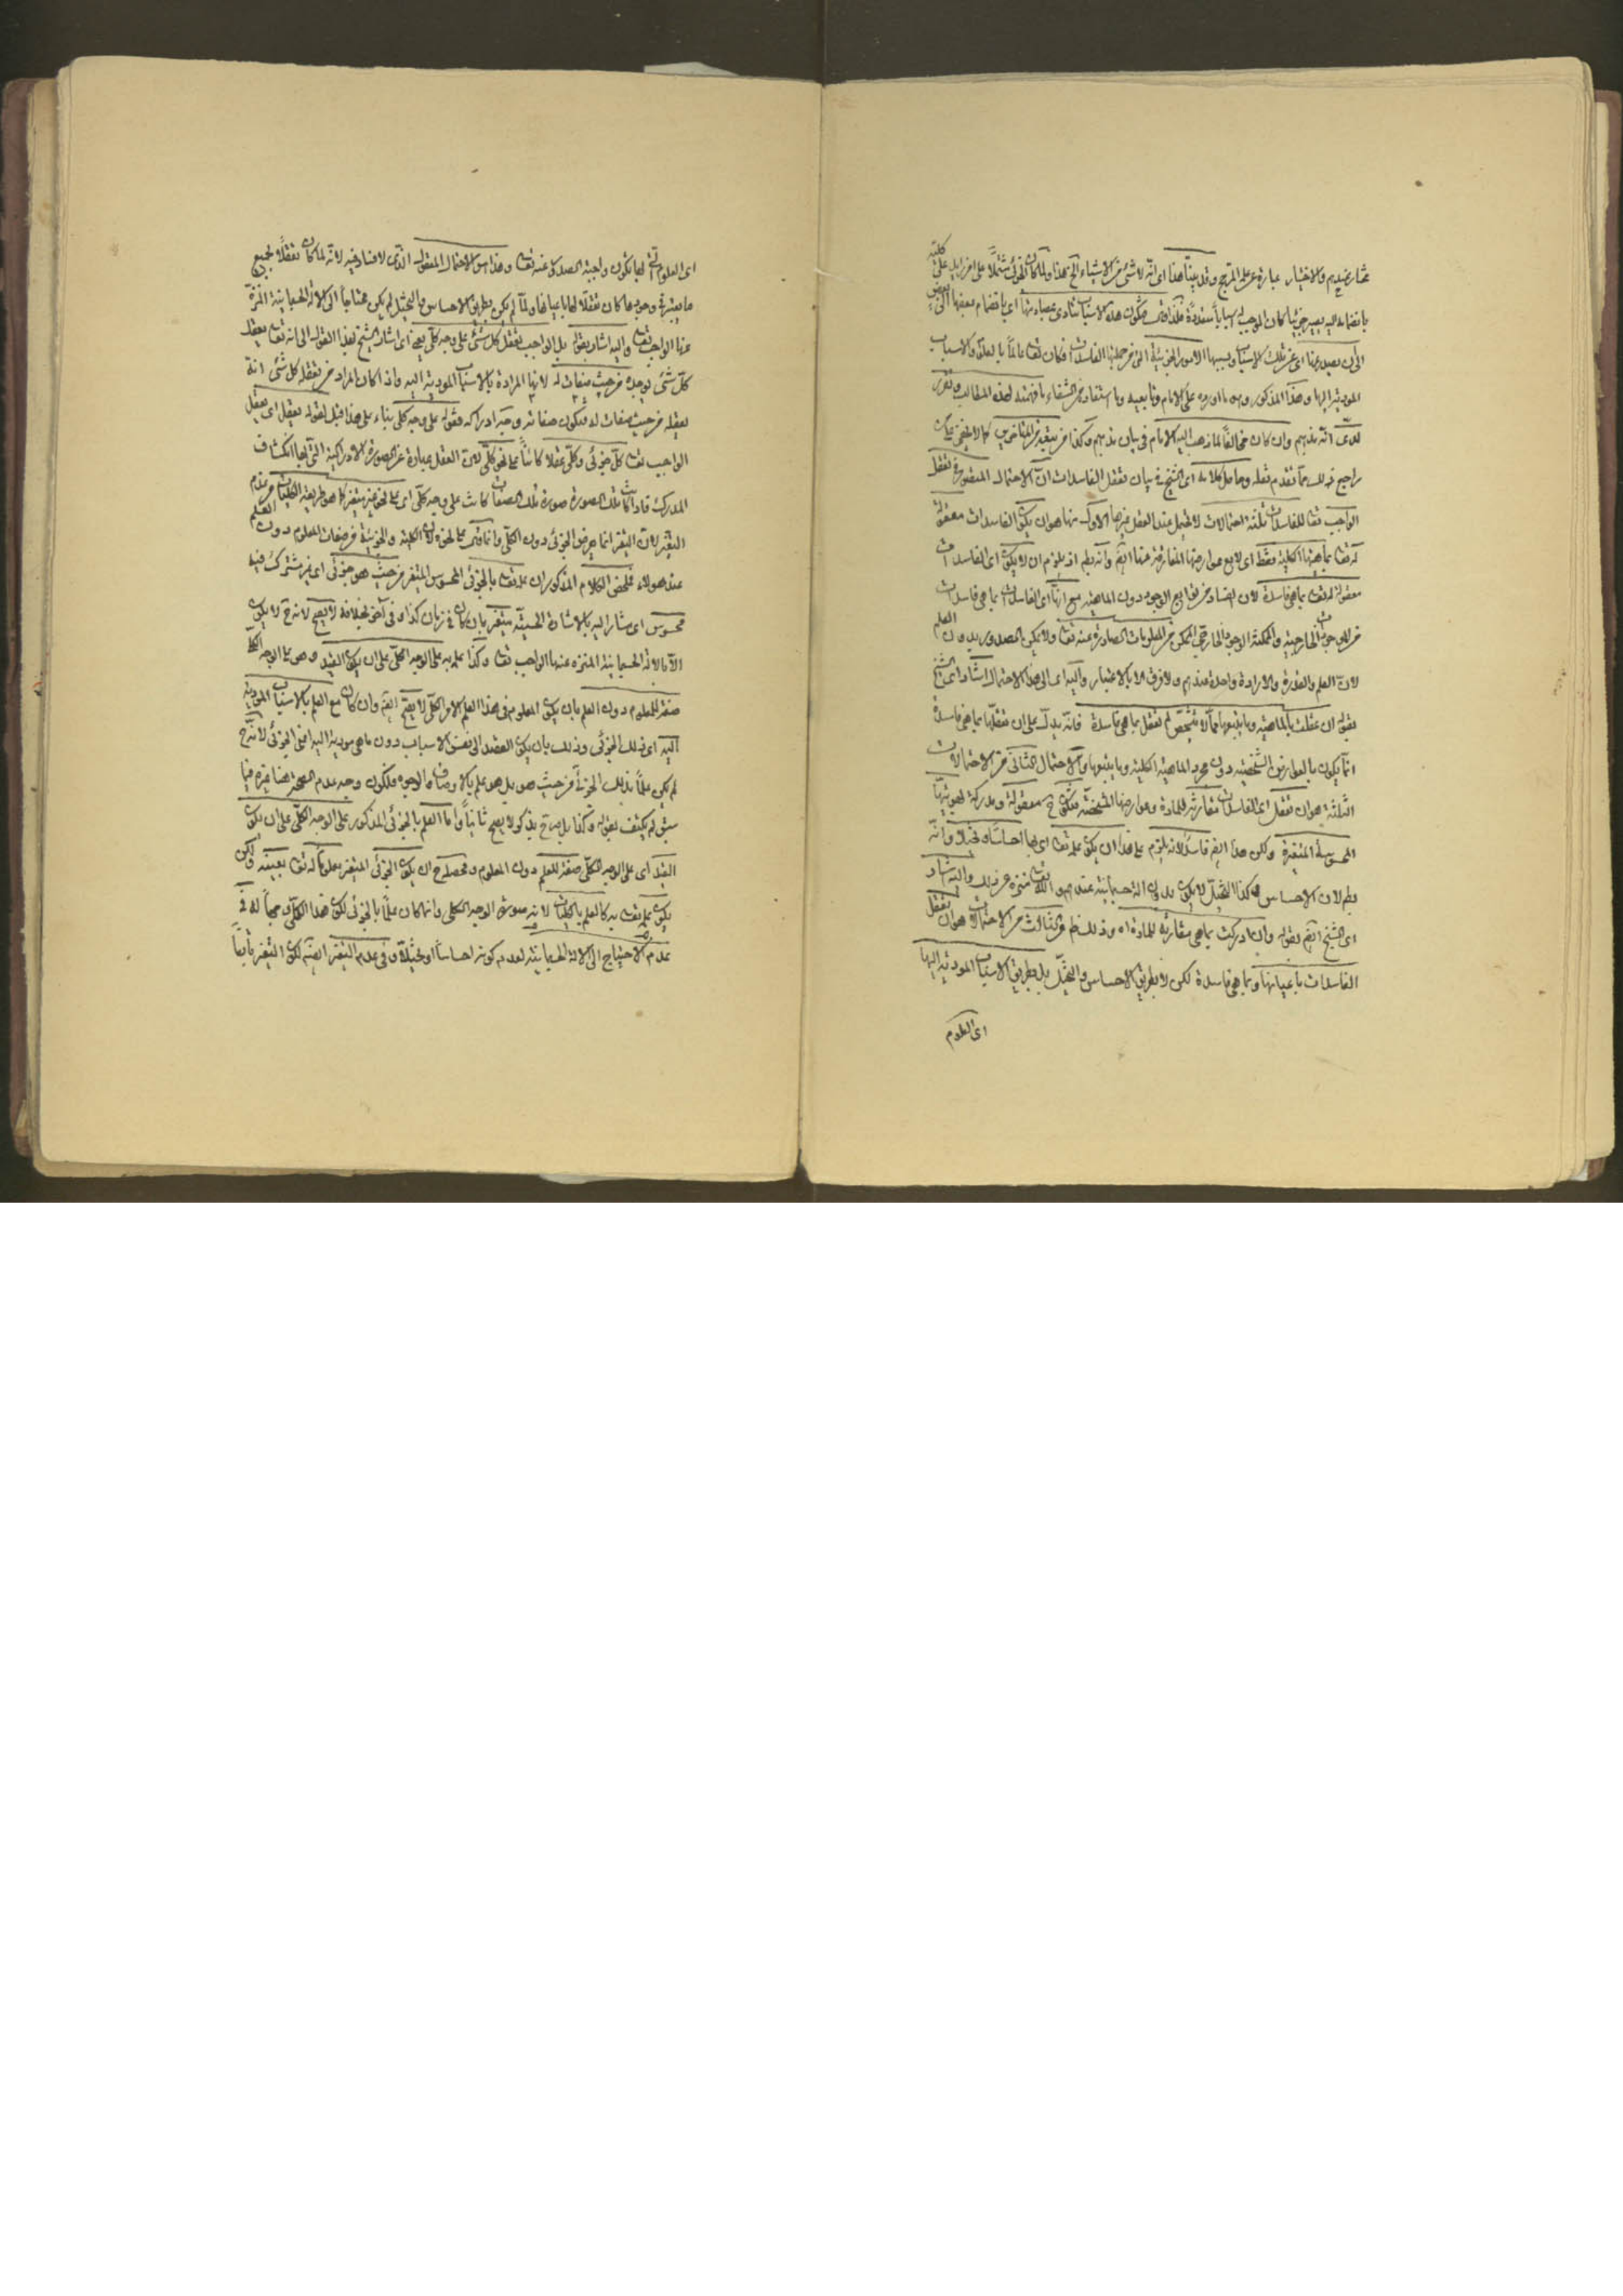 مختار عندهم والاختيار عبارة عن علم المرجح وقد بينا هذا اى انه لا شئ من الاشياء الخ هذا ولما كان الجزئى مشتملا على امر زايد على كليته
بانضمامه اليه يصير جزئيا كان الموجب له اسبابا متعددة فلذا قال فتكون هذه الاسباب تتأدى بمصادماتها اى بانضمام بعضها الى بعض
الى ان يصدر عنها اى عن تلك الاسباب وبسببها الامور الجزئية التى من جملتها الفاسدات فكان تعالى عالما بالعلل والاسباب
المودية اليها وهذا المذكور وهو ما اورده على الامام وتابعيه واستفاد من الشفاء ما فهمته لهذه المطالب وتقرر
لدى انه مذهبهم وان كان مخالفا لما ذهب اليه الامام فى بيان مذهبهم وكذا من تبعه من المتأخرين كما لا يخفى عليك
راجع فى ذلك مما تقدم نقله وحاصل كلامه اى الشيخ فى بيان تعقل الفاسدات ان الاحتمال المتصورة فى تعقل
الواجب تعالى للفاسدات ثلثة احتمالات لا يحتمل عند العقل غيرها الاول منها هو ان يكون الفاسدات معقولة
له تعالى بماهيتها الكلية فقط اى لا مع عوارضها المفارقة عنها ايضا وانه بط اذ يلزم ان لا يكون اى الفاسدات
معقولة له تعالى بما هى فاسدة لان الفساد من توابع الوجود دون الماهية مع انها اى الفاسدات بما هى فاسدات
من الموجودات الخارجية والممكنة الوجود الخارجى الممكن من المعلومات الصادرة عنه تعالى ولا يمكن الصدور بدون العلم
لان العلم والقدرة والارادة واحدة عندهم ولا فرق الا بالاعتبار واليه اى الى هذا الاحتمال اشار اى الشيخ
بقوله ان عقلت بالماهية وما يتبعها مما لا يتشخص لم تعقل بما هى فاسدة فانه يدل على ان تعقلها بما هى فاسدة
انما يكون بالعوارض الشخصية دون مجرد الماهية الكلية وما يتبعها والاحتمال الثانى من الاحتمالات
الثلثة هو ان تعقل اى الفاسدات مقارنة للمادة وعوارضها المشخصة فتكون ح معقولة ومدركة لهويتها
المحسوسة المتغيرة ولكن هذا ايضا فاسد لانه يلزم على هذا ان يكون علمه تعالى اى بها احساسا او تخيلا وانه
بط لان الاحساس وكذا التخيل لا يكون بدون آلة جسمانية عندهم والله تعالى منزه عن ذلك واليه اشار
اى الشيخ ايضا بقوله وان ادركت بما هى مقارنة للمادة اه وذلك ظ والثالث من الاحتمالات هو ان تعقل
الفاسدات باعيانها وبما هى فاسدة لكن لا بطريق الاحساس والتخيل بل بطريق الاسباب المودية اليها
اى العلوم
اى العلوم التى بها تكون واجبة الصدور عنه تعالى وهذا هو الاحتمال المعقول الذى لا فساد فيه لانه لما كان تعقلا لجميع
ما يعتبر فى وجودها كان تعقلا لها باعيانها ولما لم يكن بطريق الاحساس والتخيل لم يكن محتاجا الى الآلة الجسمانية المنزه
عنها الواجب تعالى واليه اشار بقوله بل الواجب تعقل كل شئ على وجه كلى يعنى اى اشار الشيخ بهذا القول الى انه تعالى يعقل
كل شئ يوجده من حيث صفات له لانها المرادة بالاسباب المودية اليه واذا كان المراد من تعقله كل شئ انه
يعقله من حيث صفات له فتكون صفاته وجه ادراكه فقوله على وجه كلى بناء على هذا قيل لقوله يعقل اى يعقل
الواجب تعالى كل جزئى وكلى عقلا كائنا على نحو كلى لان العقل عبارة عن الصورة الادراكية التى بها انكشاف
المدرك فاذا كانت تلك الصورة صورة تلك الصفات كانت على وجه كلى اى على نحو غير متغير كما هو طريقة الكليات من عدم
التغير لان التغير انما يعرض الجزئى دون الكلى وانما قال على نحوه لان الكلية والجزئية من صفات المعلوم دون العلم
عند هولاء فملخص الكلام المذكور ان علمه تعالى بالجزئى المحسوس المتغير من حيث هو جزئى اى غير مشترك فيه
محسوس اى مشار اليه بالاشارة الحسية متغير بان كان فى زمان كذا وفى آخر بخلافه لا يصح لانه ح لا يكون
الا بالآلة الجسمانية المنزه عنها الواجب تعالى وكذا علمه به على الوجه الكلى على ان يكون القيد وهو على الوجه الكلى
صفة للمعلوم دون العلم بان يكون المعلوم فى هذا العلم الامر الكلى لا يصح ايضا وان كان مع العلم بالاسباب المودية
اليه اى ذلك الجزئى وذلك بان يكون القصد الى نفس الاسباب دون ما هى مودية اليه اعنى الجزئى لانه ح
لم يكن علما بذلك الجزئى من حيث هو بل هو علم بالاوصاف والوجوه ولكون وجه عدم الصحة هنا غيره فيما
سبق لم يكتف بقوله وكذا بل صرح بذكر لا يصح ثانيا واما العلم بالجزئى المذكور على الوجه الكلى على ان يكون
القيد اى على الوجه الكلى صفة للعلم دون المعلوم ومحصله ح ان يكون الجزئى المتغير معلوما له تعالى بعينه ولكن
يكون علمه تعالى به كالعلم بالكليات لانه بصورة الوجه الكلى وانما كان علما بالجزئى لكون هذا الكلى وجها له فى
عدم الاحتياج الى الآلة الجسمانية لعدم كونه احساسا او تخيلا وفى عدم التغير ايضا لكون التغير تابعا